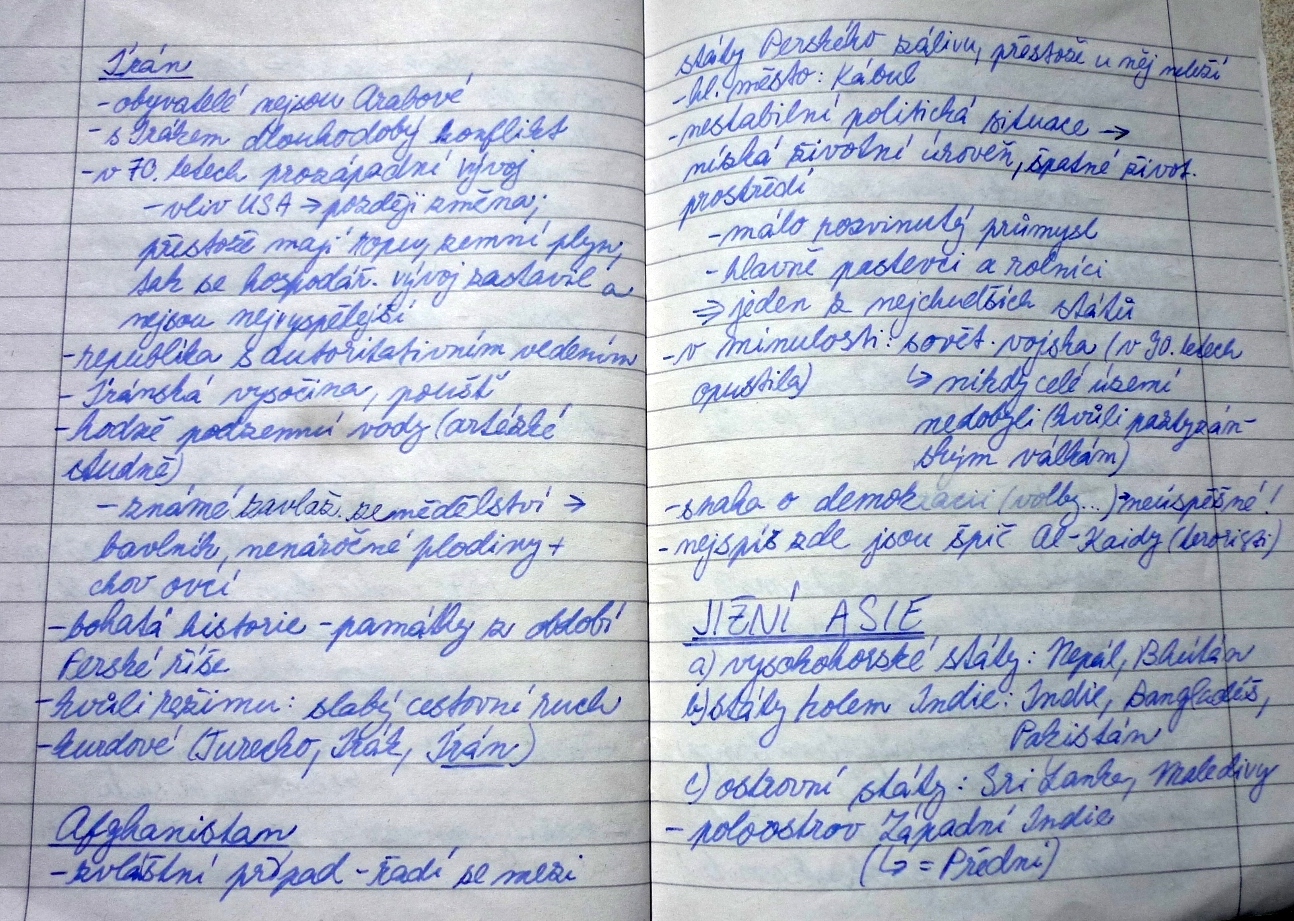 Írán
- obyvatelé nejsou Arabové
- s Irákem dlouhodobý konflikt
- v 70. letech prozápadní vývoj
- vliv USA → později změna;
přestože mají ropu, zemní plyn,
tak se hospodář. vývoj zastavil a
nejsou nejvyspělejší
- republika s autoritativním vedením
- Íránská vysočina, poušť
- hodně podzemní vody (artéské
studně)
- známé zavlaž. zemědělství →
bavlník, nenáročné plodiny +
chov ovcí
- bohatá historie - památky z období
Perské říše
- kvůli režimu: slabý cestovní ruch
- kurdové (Turecko, Irák, Írán)
Afghanistan
- zvláštní případ - řadí se mezi
státy Perského zálivu, přestože u něj neleží
- hl. město: Kábul
- nestabilní politická situace →
nízká životní úroveň, špatné život.
prostředí
- málo rozvinutý průmysl
- hlavně pastevci a rolníci
⇒ jeden z nejchudších států
- v minulosti: sovět. vojska (v 90. letech
opustila) ↳ nikdy celé území
nedobyli (kvůli partyzán-
ským válkám)
- snaha o demokracii (volby...) → neúspěšné!
- nejspíš zde jsou špič Al-Kaidy (teroristi)
JIŽNÍ ASIE
a) vysokohorské státy: Nepál, Bhútán
b) státy kolem Indie: Indie, Bangladéš,
Pakistán
c) ostrovní státy: Srí Lanka, Maledivy
- poloostrov Západní Indie
(↳ = Přední)